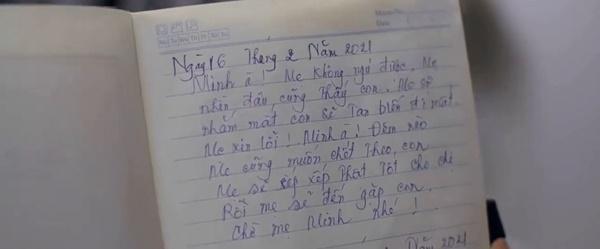 Ngày 16 Tháng 2 Năm 2021
Minh à! Mẹ không ngủ được. Mẹ
nhìn đâu cũng thấy con. Mẹ sợ
nhắm mắt con sẽ tan biến đi mất.
Mẹ xin lỗi! Minh à! Đêm nào
Mẹ cũng muốn chết theo con
Mẹ sẽ sắp xếp thật tốt cho chị
Rồi mẹ sẽ đến gặp con.
Chờ mẹ Minh nhé!
Năm 2021